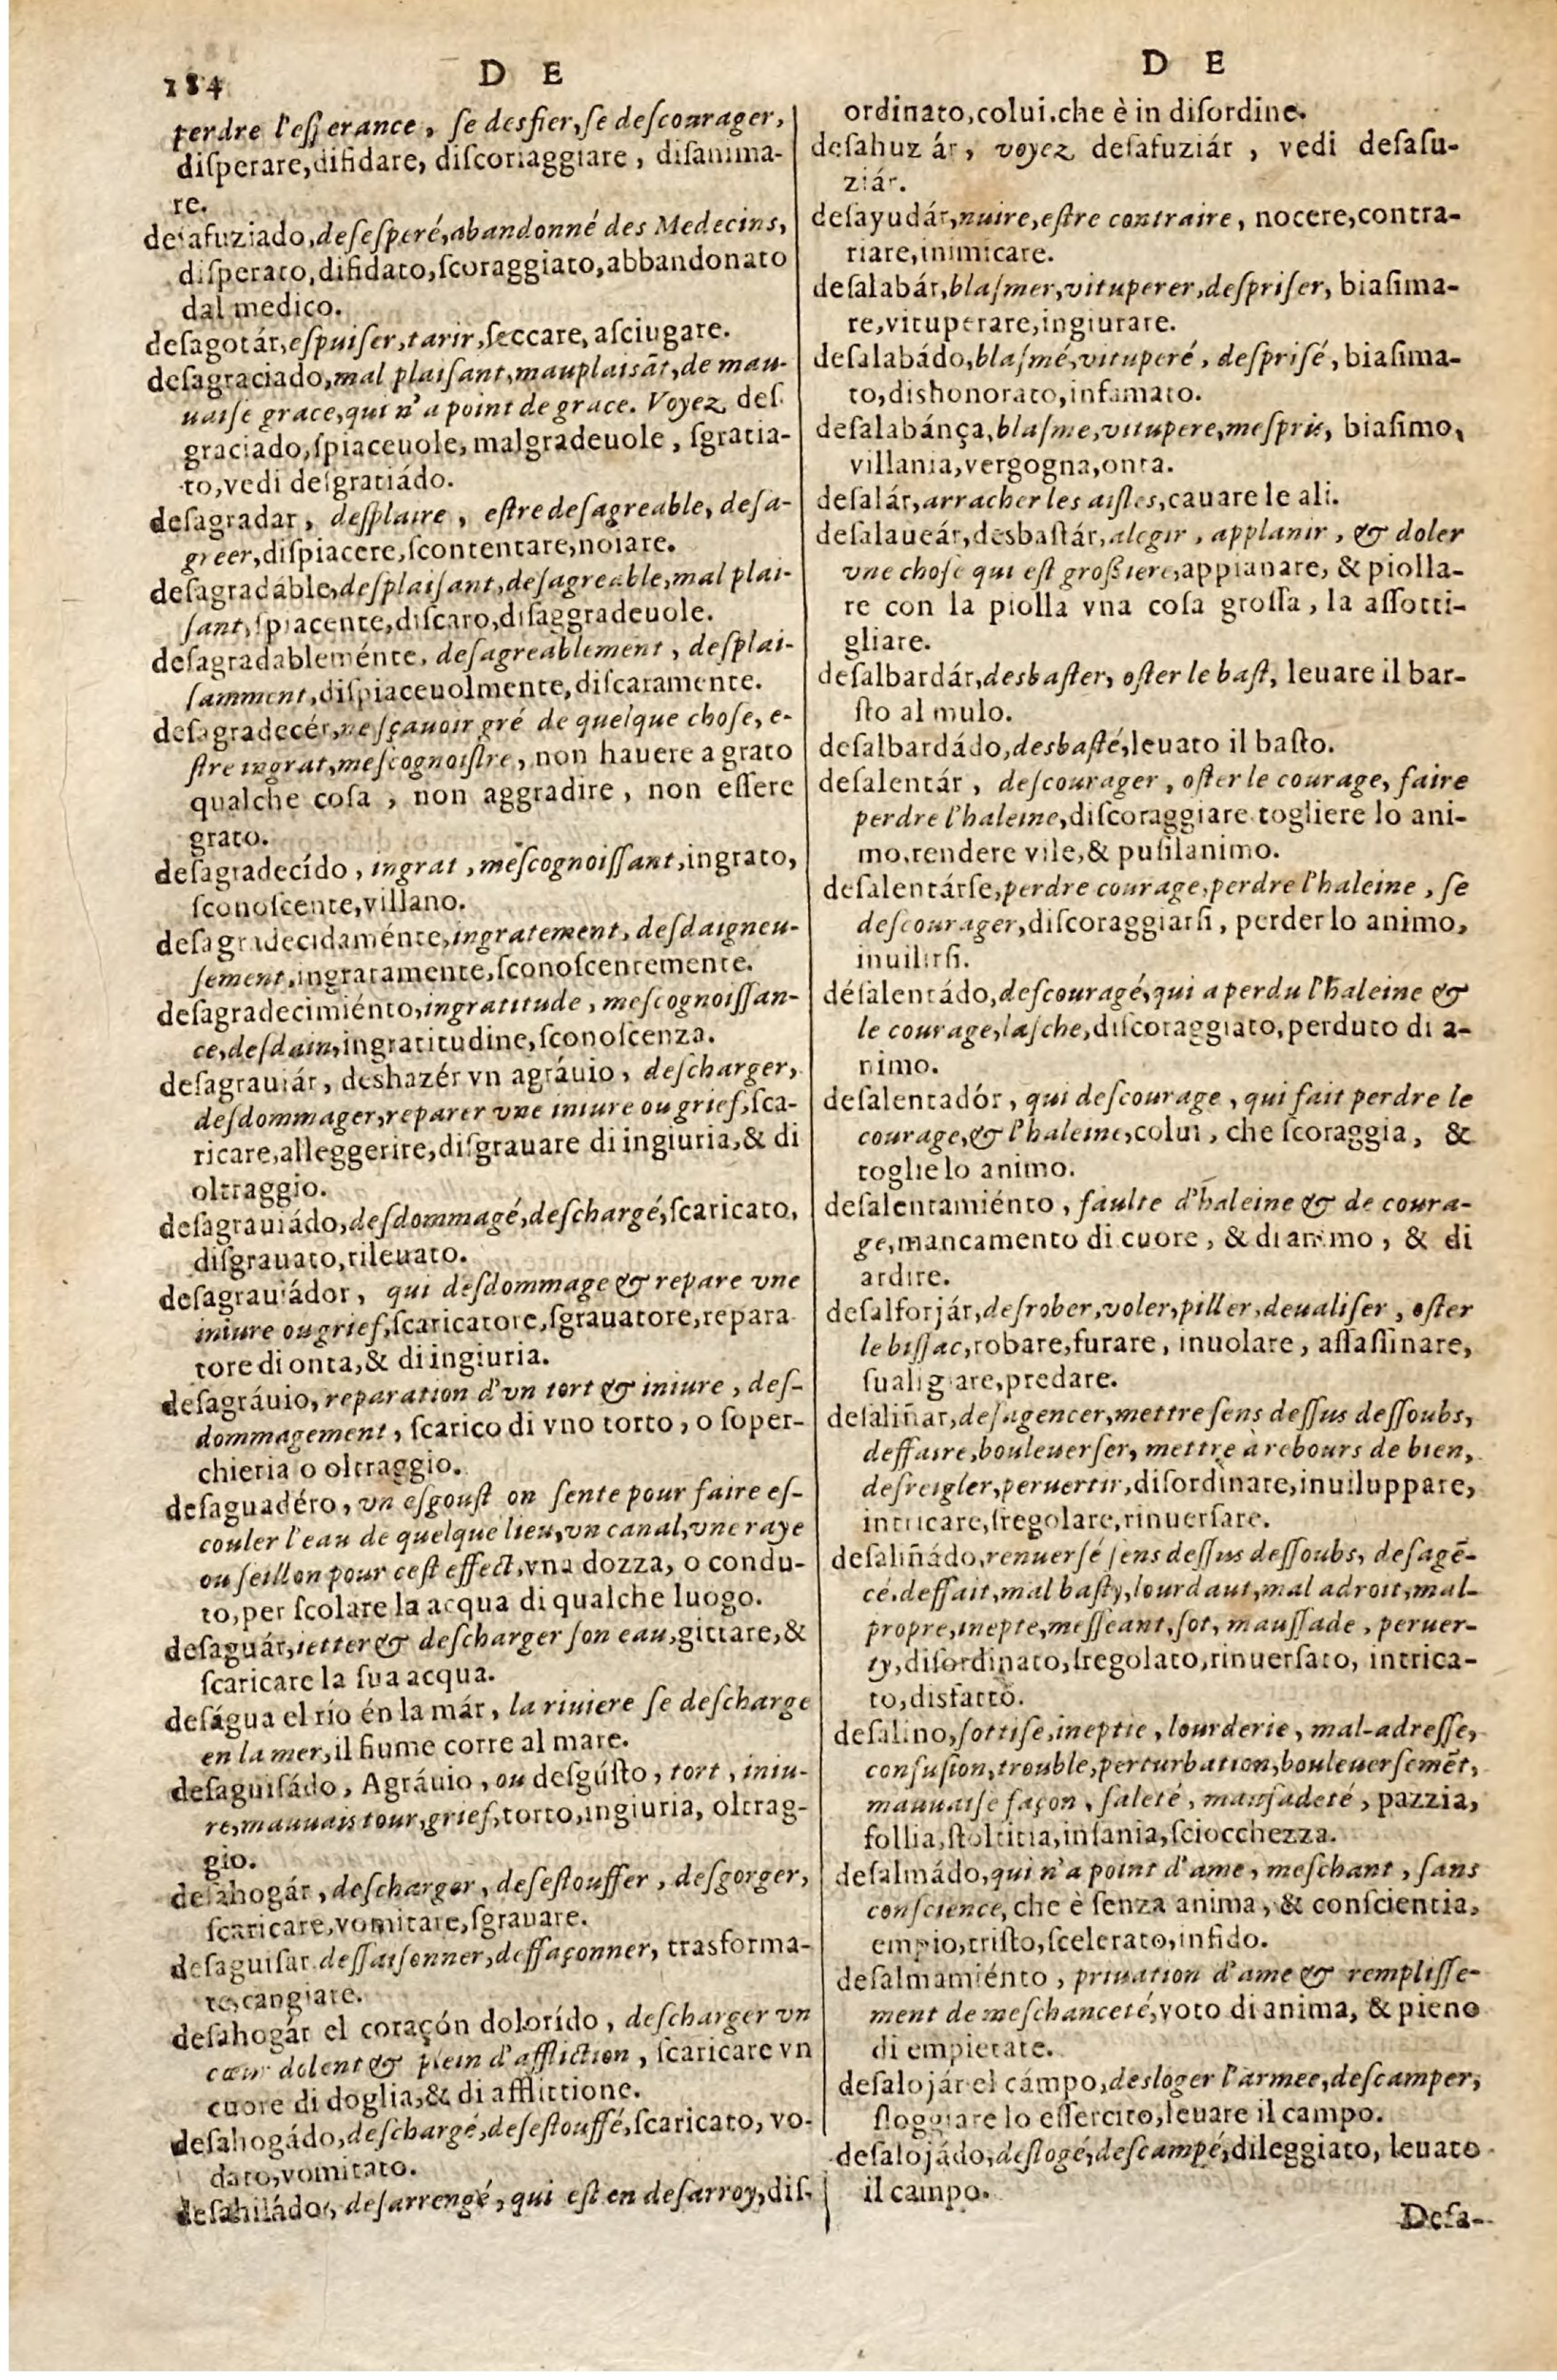 184
D E
perdre l'esperance, se desfier, se descourager,
disperare, difidare, discoriaggiare, disanima-
re.
desafuziado, desesperé, abandonné des Medecins,
disperato, difidato, scoraggiato, abbandonato
dal medico.
desagotár, espuiser, tarir, seccare, asciugare.
desagraciado, mal plaisant, mauplaisãt, de mau-
uaise grace, qui n'a point de grace. Voyez des-
graciado, spiaceuole, malgradeuole, sgratia-
to, vedi desgratiádo.
desagradar, desplaire, estre desagreable, desa-
greer, dispiacere, scontentare, noiare.
desagradáble, desplaisant, desagreable, mal plai-
sant, spiacente, discaro, disaggradeuole.
desagradableménte, desagreablement, desplai-
samment, dispiaceuolmente, discaramente.
desagradecér, ne sçauoir gré de quelque chose, e-
stre ingrat, mescognoistre, non hauere a grato
qualche cosa, non aggradire, non essere
grato.
desagradecído, ingrat, mescognoissant, ingrato,
sconoscente, villano.
desagradecidaménte, ingratement, desdaigneu-
sement, ingratamente, sconoscentemente.
desagradecimiénto, ingratitude, mescognoissan-
ce, desdain, ingratitudine, sconoscenza.
desagrauiár, deshazér vn agráuio, descharger,
desdommager, reparer vne iniure ou grief, sca-
ricare, alleggerire, disgrauare di ingiuria, & di
oltraggio.
desagrauiádo, desdommagé, deschargé, scaricato,
disgrauato, rileuato.
desagrauiádor, qui desdommage & repare vne
iniure ou grief, scaricatore, sgrauatore, repara
tore di onta, & di ingiuria.
desagráuio, reparation d'vn tort & iniure, des-
dommagement, scarico di vno torto, o soper-
chieria o oltraggio.
desaguadéro, vn esgoust on sente pour faire es-
couler l'eau de quelque lieu, vn canal, vne raye
ou seillon pour cest effect, vna dozza, o condu-
to, per scolare la acqua di qualche luogo.
desaguár, ietter & descharger son eau, gittare, &
scaricare la sua acqua.
deságua el río én la már, la riuiere se descharge
en la mer, il fiume corre al mare.
desaguisádo, Agráuio, ou desgústo, tort, iniu-
re, mauuais tour, grief, torto, ingiuria, oltrag-
gio.
desahogár, descharger, desestouffer, desgorger,
scaricare, vomitare, sgrauare.
desaguisar dessaisonner, deffaçonner, trasforma-
re, cangiare.
desahogár el coraçón dolorído, descharger vn
cœur dolent & plein d'affliction, scaricare vn
cuore di doglia, & di afflittione.
desahogádo, deschargé, desestouffé, scaricato, vo-
dato, vomitato.
desahiládo, desarrengé, qui est en desarroy, dis-
D E
ordinato, colui, che è in disordine.
desahuz ár, voyez desafuziár, vedi desafu-
ziár.
desayudár, nuire, estre contraire, nocere, contra-
riare, inimicare.
desalabár, blasmer, vituperer, despriser, biasima-
re, vituperare, ingiurare.
desalabádo, blasmé, vituperé, desprisé, biasima-
to, dishonorato, infamato.
desalabánça, blasme, vitupere, mespris, biasimo,
villania, vergogna, onta.
desalár, arracher les aisles, cauare le ali.
desalaueár, desbastár, alegir, applanir, & doler
vne chose qui est grossiere, appianare, & piolla-
re con la piolla vna cosa grossa, la assotti-
gliare.
desalbardár, desbaster, oster le bast, leuare il bar-
sto al mulo.
desalbardádo, desbasté, leuato il basto.
desalentár, descourager, oster le courage, faire
perdre l'haleine, discoraggiare togliere lo ani-
mo, rendere vile, & pusilanimo.
desalentárse, perdre courage, perdre l'haleine, se
descourager, discoraggiarsi, perder lo animo,
inuilirsi.
désalentádo, descouragé, qui a perdu l'haleine &
le courage, lasche, discoraggiato, perduto di a-
nimo.
desalentadór, qui descourage, qui fait perdre le
courage, & l'haleine, colui, che scoraggia, &
toglie lo animo.
desalentamiénto, faulte d'haleine & de coura-
ge, mancamento di cuore, & di animo, & di
ardire.
desalforjár, desrober, voler, piller, deualiser, oster
le bissac, robare, furare, inuolare, assassinare,
sualigiare, predare.
desaliñar, desagencer, mettre sens dessus dessoubs,
deffaire, bouleuerser, mettre à rebours de bien,
desreigler, peruertir, disordinare, inuiluppare,
intricare, sregolare, rinuersare.
desaliñádo, renuersé sens dessus dessoubs, desagẽ-
cé, deffait, mal basty, lourdaut, mal adroit, mal-
propre, inepte, messeant, sot, maussade, peruer-
ty, disordinato, sregolato, rinuersato, intrica-
to, disfatto.
desalino, sottise, ineptie, lourderie, mal-adresse,
confusion, trouble, perturbation, bouleuersemẽt,
mauuaise façon, saleté, mausadeté, pazzia,
follia, stoltitia, insania, sciocchezza.
desalmádo, qui n'a point d'ame, meschant, sans
conscience, che è senza anima, & conscientia,
empio, tristo, scelerato, infido.
desalmamiénto, priuation d'ame & remplisse-
ment de meschanceté, voto di anima, & pieno
di empietate.
desalojár el cámpo, desloger l'armee, descamper,
sloggiare lo essercito, leuare il campo.
desalojádo, deslogé, descampé, dileggiato, leuato
il campo.
Desa-